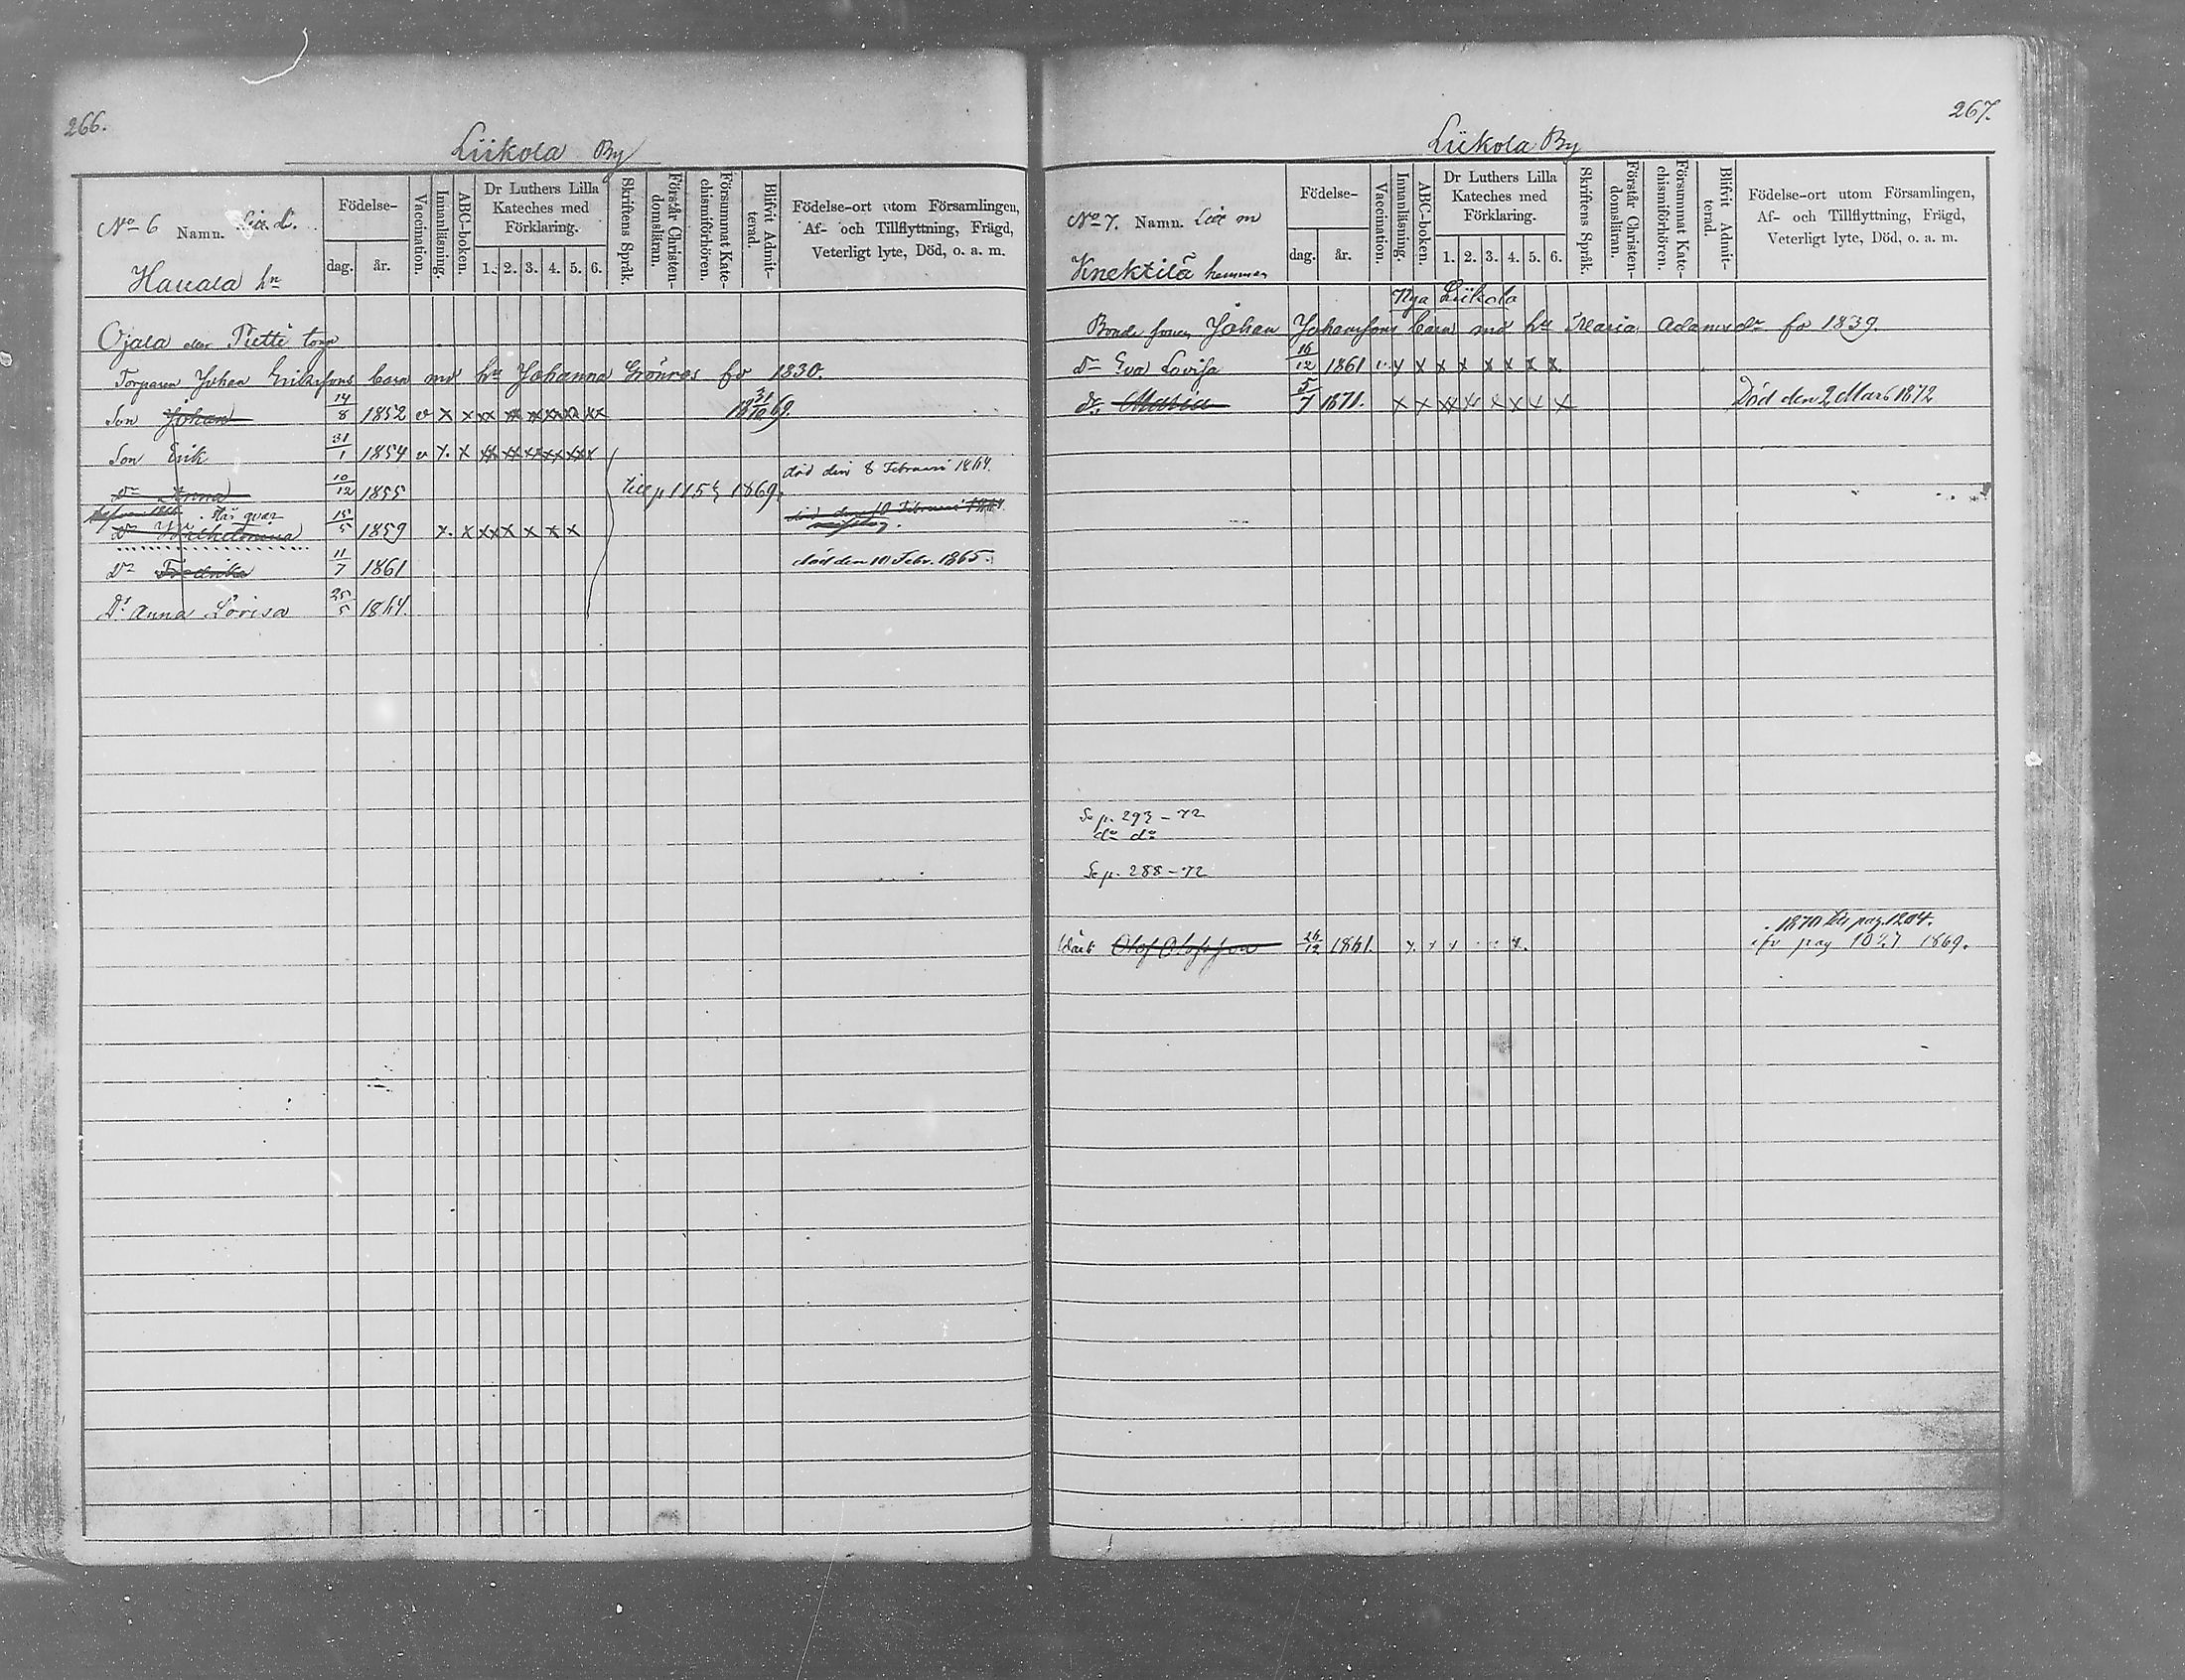 266.
Liikola By
No 6 Namn. Litt. L.
Hauala hn
Födelse-
dag. år.
Vaccination.
Innanläsning.
ABC-boken.
Dr Luthers Lilla
Kateches med
Förklaring.
1. 2. 3. 4. 5. 6.
Skriftens Språk.
Förstår Christen-
domslärän.
Försummat Kate-
chismiförhören.
Blifvit Admit-
terad.
Födelse-ort utom Församlingen,
Af- och Tillflyttning, Frägd,
Veterligt lyte, Död, o. a. m.
Ojala eller Pietti torp
Torparen Johan Erikssons barn md hu Johanna Grönros fö 1830.
Son Johan 14/8 1852 v x x xx xx xx xx xx xx 18 31/10 69.
Son Erik 31/1 1854 v x. x xx xx xx xx xx xx
Dr Anna 10/12 1855 till p 1154 1869. död den 8 Februari 1864.
står qvar
Dr Wilhelmina 15/5 1859 x. x xx x x x x död den 10 Februari 1864.
Dr Fredrika 11/7 1861 död den 10 Febr. 1865.
Dr Anna Lovisa 25/5 1864.
267.
Liikola By
No 7. Namn. Litt m
Knektilä hemman
Födelse-
dag. år.
Vaccination.
Innanläsning.
ABC-boken.
Dr Luthers Lilla
Kateches med
Förklaring.
1. 2. 3. 4. 5. 6.
Skriftens Språk.
Förstår Christen-
domslärän.
Försummat Kate-
chismiförhören.
Blifvit Admit-
terad.
Födelse-ort utom Församlingen,
Af- och Tillflyttning, Frägd,
Veterligt lyte, Död, o. a. m.
Nya Liikola
Bonde sonen Johan Johanssons barn md hu Maria Adamsdr fö 1839.
dr Eva Lovisa 16/12 1861 v. x x x x x x x x
dr. Maria 5/7 1871. x x xx xx x x x x Död den 2 Mars 1872
Se p. 293 - 72
do do
Se p. 288 - 72
1870 till pag. 1204.
Olof Olofsson 26/12 1861. x x x x. ifr pag 1027 1869.